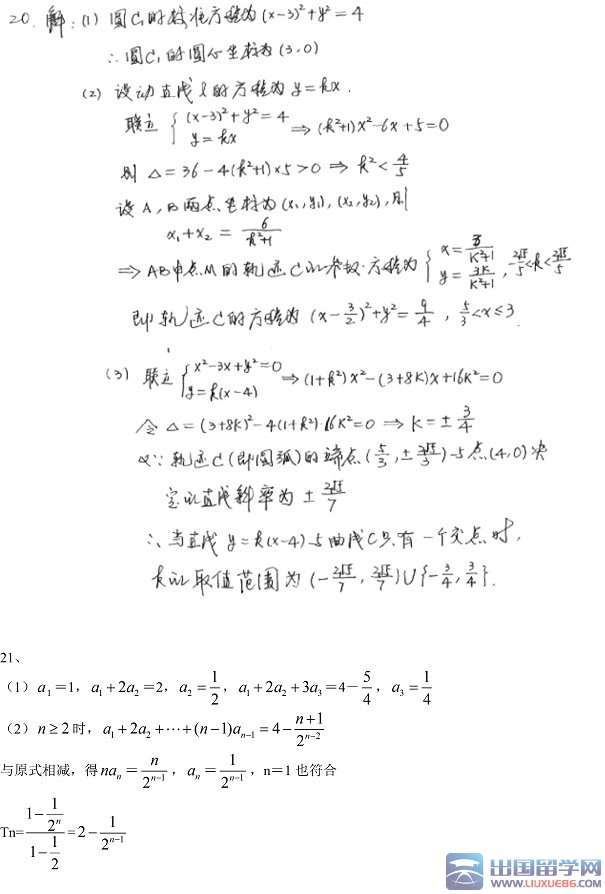 20. 解：(1) 圆C₁的标准方程为 (x-3)²+y²=4
∴圆C₁的圆心坐标为 (3,0)
(2) 设动直线 l 的方程为 y=kx.
联立 { (x-3)²+y²=4 y=kx ⇒ (k²+1)x²-6x+5=0
则 △=36-4(k²+1)×5>0 ⇒ k²<4/5
设 A,B两点坐标为 (x₁,y₁), (x₂,y₂), 则
x₁+x₂ = 6/(k²+1)
⇒ AB中点M的轨迹C的参数方程为 { x=3/(k²+1) y=3k/(k²+1) , -2√5/5<k<2√5/5
即轨迹C的方程为 (x-3/2)²+y²=9/4 , 5/3<x≤3.
(3) 联立 { x²-3x+y²=0 y=k(x-4) ⇒ (1+k²)x²-(3+8k)x+16k²=0
令 △=(3+8k)²-4(1+k²)·16k²=0 ⇒ k=±3/4
又∵轨迹C(即圆弧)的端点 (5/3, ±2√5/3) 与点(4,0)决
定的直线斜率为 ±2√5/7
∴当直线 y=k(x-4)与曲线C只有一个交点时,
k的取值范围为 (-2√5/7, 2√5/7)∪{-3/4, 3/4}.
21、
（1）a₁=1，a₁+2a₂=2，a₂=1/2，a₁+2a₂+3a₃=4－5/4，a₃=1/4
（2）n≥2时，a₁+2a₂+⋯+(n-1)aₙ₋₁=4-(n+1)/2ⁿ⁻²
与原式相减，得naₙ=n/2ⁿ⁻¹，aₙ=1/2ⁿ⁻¹，n＝1也符合
Tn=(1-1/2ⁿ)/(1-1/2)=2-1/2ⁿ⁻¹
出国留学网
WWW.LIUXUE86.COM